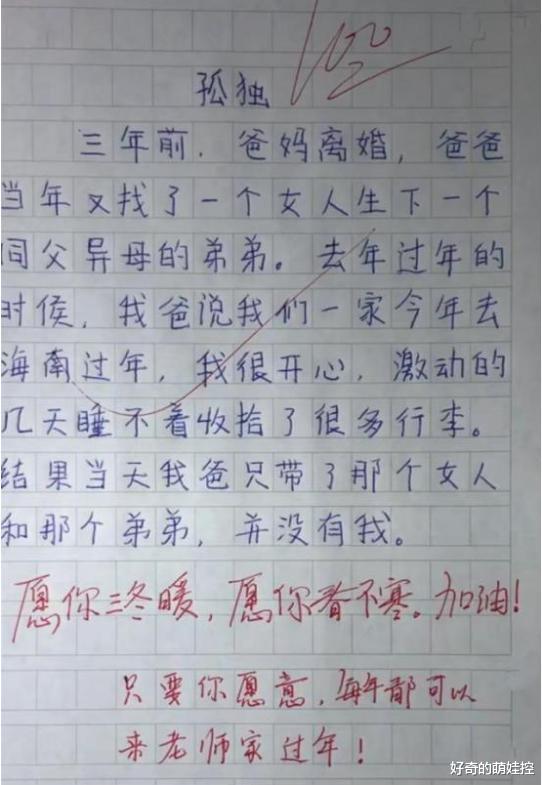 100
孤独
三年前，爸妈离婚，爸爸
当年又找了一个女人生下一个
同父异母的弟弟。去年过年的
时侯，我爸说我们一家今年去
海南过年，我很开心，激动的
几天睡不着收拾了很多行李。
结果当天我爸只带了那个女人
和那个弟弟，并没有我。
愿你三冬暖，愿你春不寒。加油！
只要你愿意，每年都可以
来老师家过年！
好奇的萌娃控